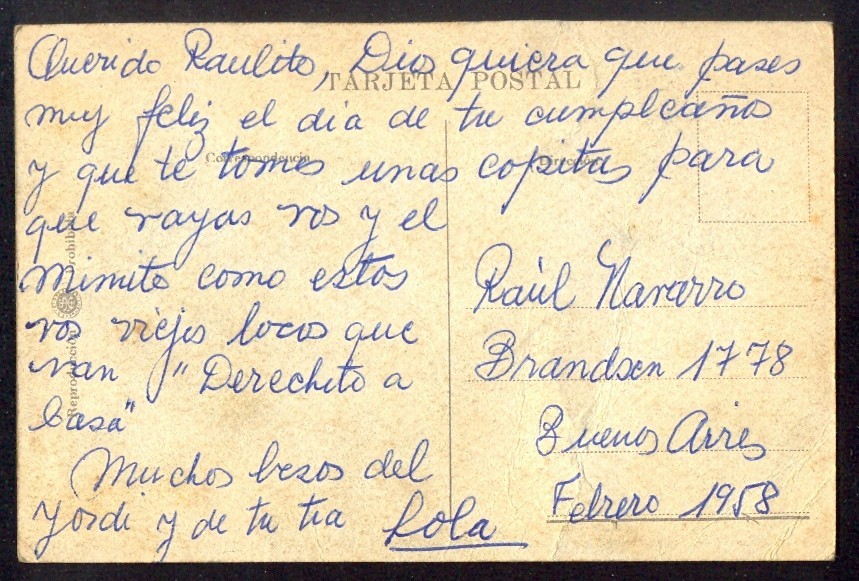 Querido Raulito, Dios quiera que pases
TARJETA POSTAL
muy feliz el día de tu cumpleaños
Correspondencia
Dirección
y que te tomes unas copitas para
que vayas vos y el
Mimito como estos
dos viejos locos que
van "Derechito a
Casa"
Muchos besos del
Jordi y de tu tía Lola
Raúl Navarro
Brandsen 1778
Buenos Aires
Febrero 1958
Reproducción Prohibida